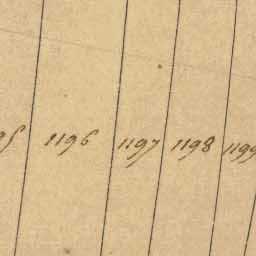 1196 1197 1198 1199